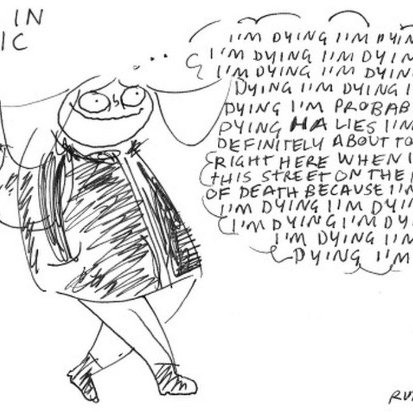 IN
IC
I'M DYING I'M DYIN
I'M DYING I'M DYIN
I'M DYING I'M DYIN
DYING I'M DYING I
DYING I'M PROBAB
DYING HA LIES I'M
DEFINITELY ABOUT TO
RIGHT HERE WHEN I
THIS STREET ON THE
OF DEATH BECAUSE I'M
I'M DYING I'M DYIN
I'M DYING I'M DYIN
I'M DYING I'M
DYING I'M
RU